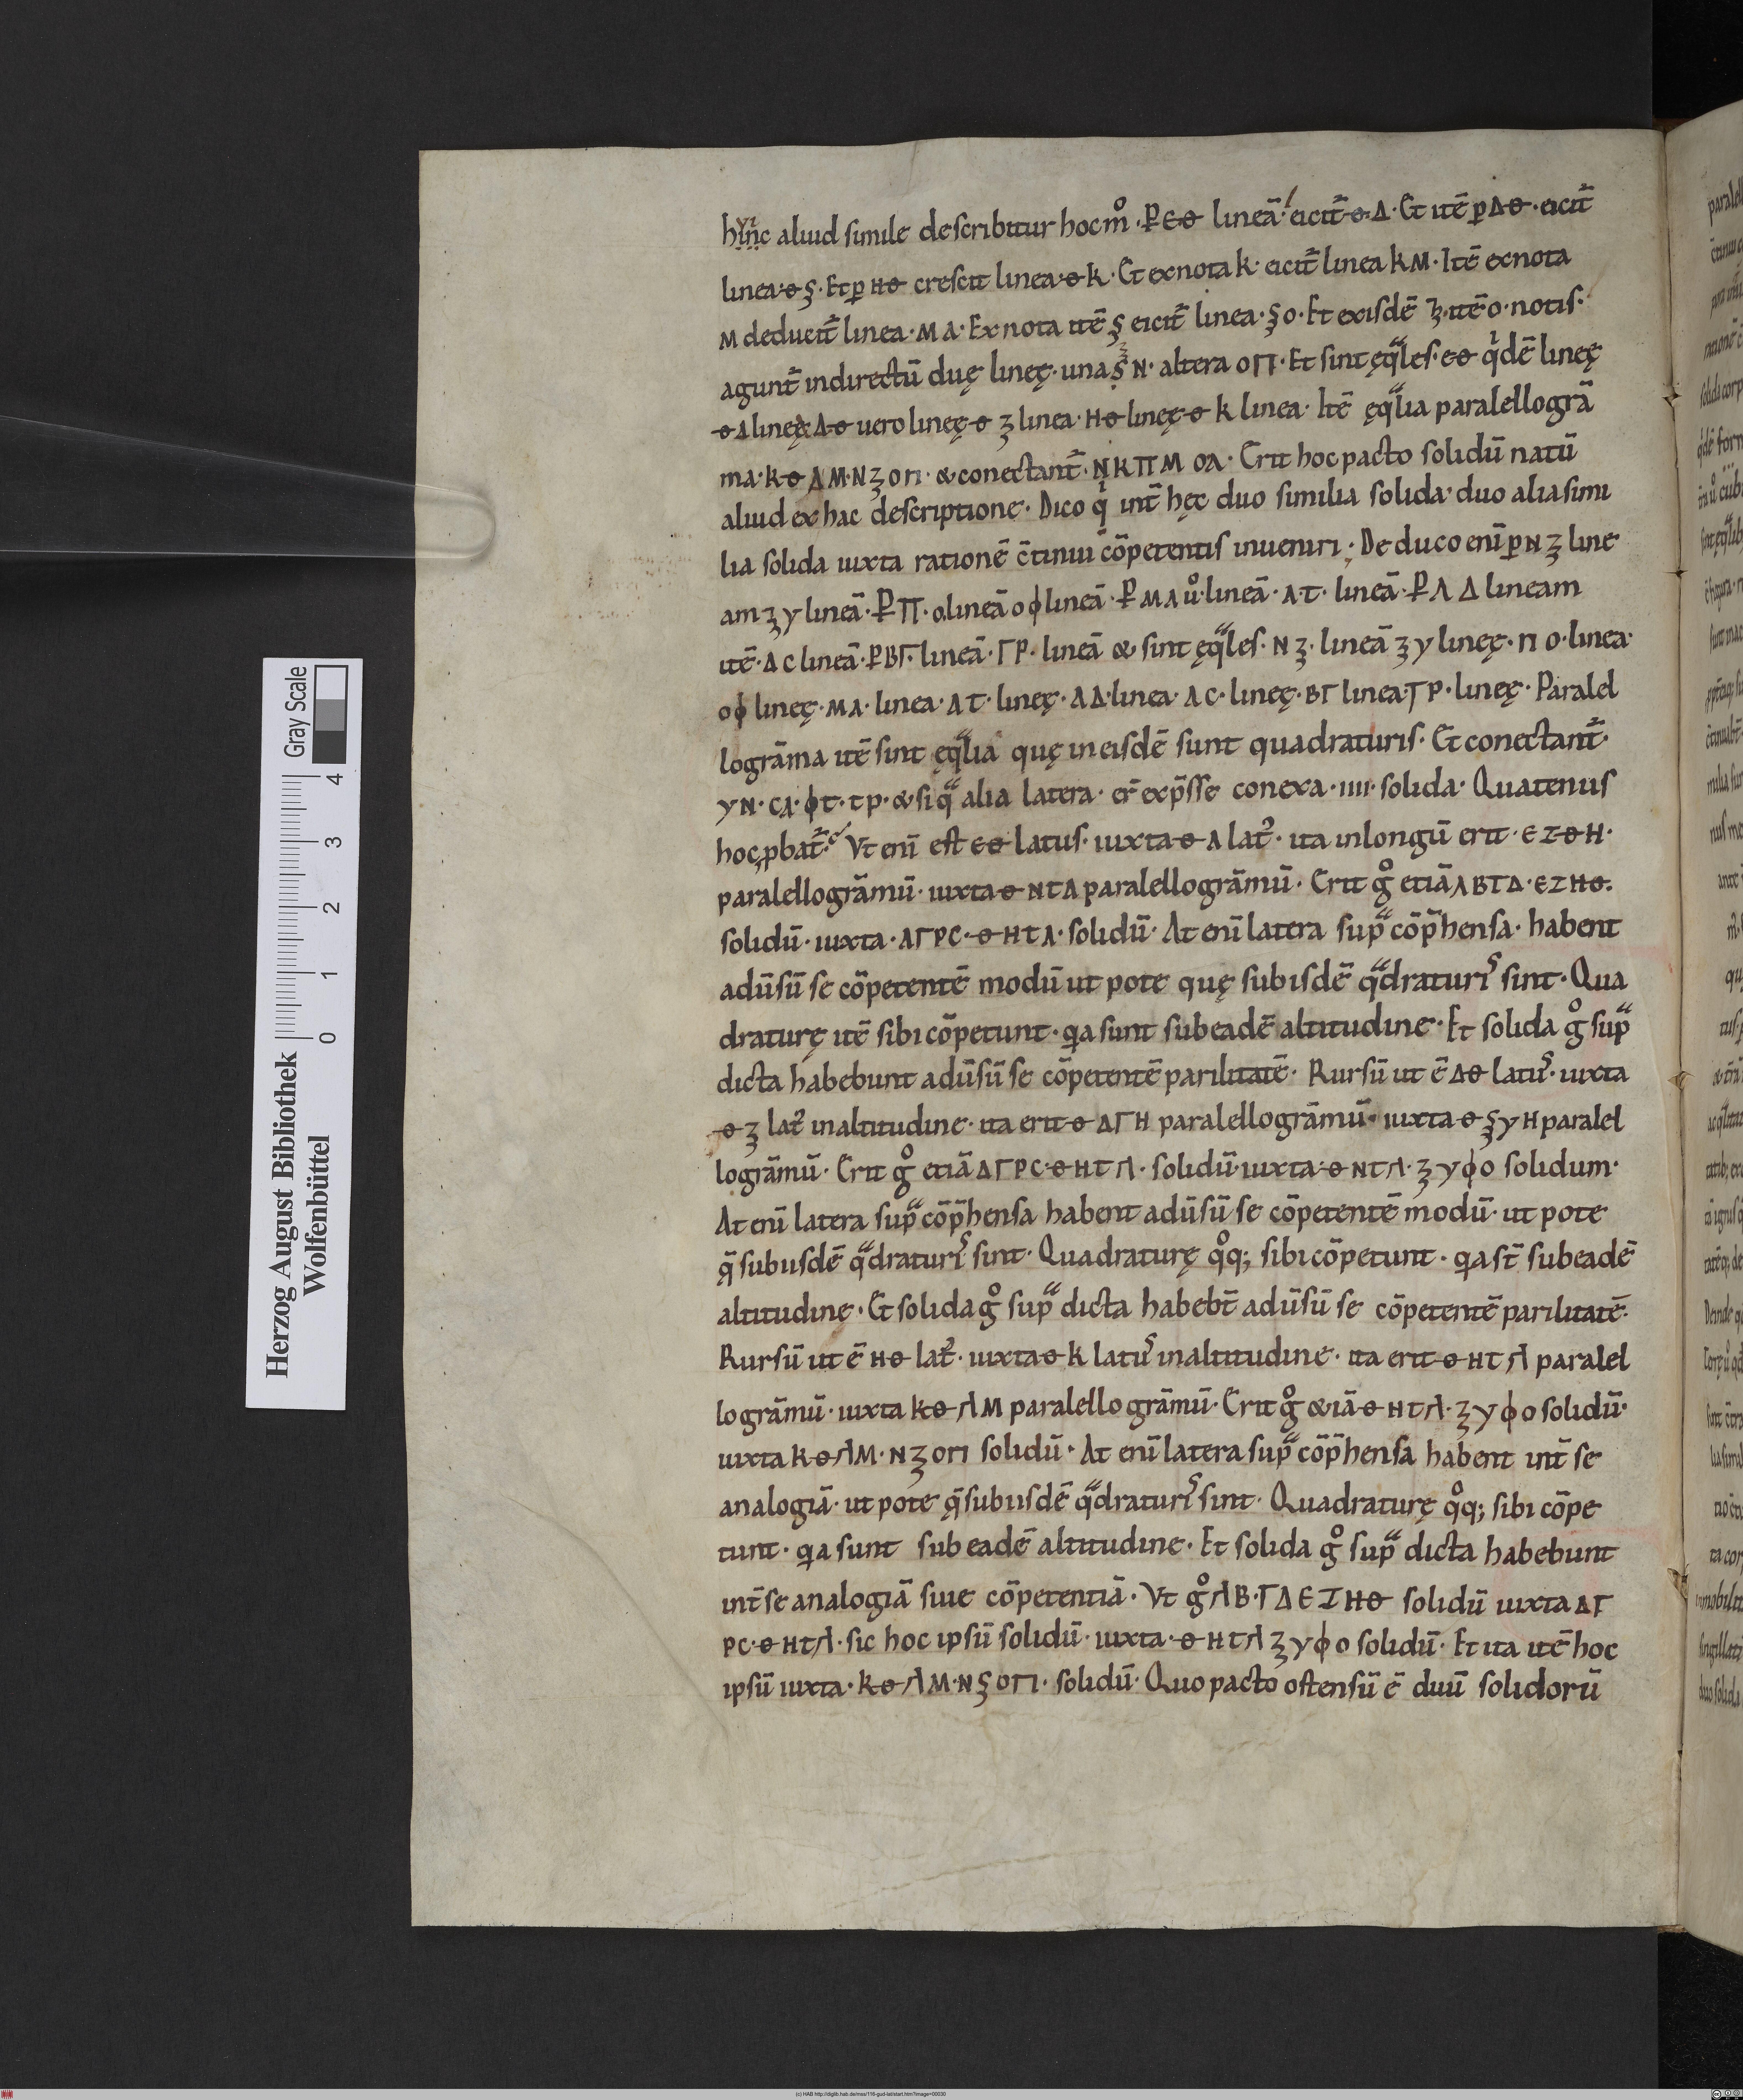 hinc aliud simile describitur hoc m̊. P̱ ЄΘ lineā. eicit̄ Θ Δ. Et itē p̱ ΔΘ. eicit̄
linea Θ Ȝ. Et p̱ HΘ crescit linea Θ K. Et ex nota K. eicit̄ linea KM. Itē ex nota
M deducit̄ linea. MΛ. Ex nota itē Ȝ eicit̄ linea. ȜO. Et ex isdē Ȝ. itē O. notis.
agunt̄ indirectū duę lineę. una ȜN. altera OΠ. Et sint ęqles. ЄΘ qdē lineę
ΘΛ lineę ΔΘ uero lineę Θ Ȝ linea. HΘ lineę Θ K linea. Itē ęqlia paralellogrā
ma. KΘ ΛM. NȜ OΠ. & conectant̄. NK ΠM OΛ. Erit hoc pacto solidū natū
aliud ex hac descriptione. Dico q int̄ hęc duo similia solida. duo alia simi
lia solida iuxta rationē c̄tinui cōpetentis inueniri. Deduco eni p̱ N Ȝ line
am Ȝ Y lineā. P̱ Π. O lineā O ϕ lineā. P̱ MΛ ů. lineā. Λ. T. lineā. P̱ Λ Δ lineam
itē. Δ C lineā. P̱ BΓ. lineā. ΓP. lineā & sint ęqles. N Ȝ. lineā Ȝ Y lineę. Π O. linea.
O ϕ lineę. MΛ. linea. ΛT. lineę. ΛΔ. linea. ΛC. lineę. BΓ linea. ΓP. lineę. Paralel
logrāma itē sint ęqlia quę in eisdē sunt quadraturis. Et conectant̄.
YN. CΛ. ϕT. TP. & siq alia latera. er̄ exp̄sse conexa. IIII. solida. Quatenus
hoc pbat̄. Vt eni est ЄΘ latus. iuxta Θ Λ lat. ita in longū erit. Є Z Θ H.
paralellogrāmū. iuxta Θ HTΛ paralellogrāmū. Erit g̊ etiā ΛBΓΔ. ЄZHΘ.
solidū. iuxta. ΛΓPC. Θ HTΛ. solidū. At eni latera sup̄ cōp̄hensa. habent
adūsū se cōpetentē modū ut pote quę sub isdē qdraturis sint. Qua
draturę itē sibi cōpetunt. qa sunt sub eadē altitudine. Et solida g̊ sup̄
dicta habebunt adūsū se cōpetentē parilitatē. Rursū ut ē ΔΘ latus. iuxta
Θ Ȝ lat in altitudine. ita erit Θ ΔΓH paralellogrāmū. iuxta Θ ȜYH paralel
logrāmū. Erit g̊ etiā ΔΓPC. Θ HTΛ. solidū. iuxta. Θ HTΛ. ȜYϕO solidum.
At eni latera sup̄ cōp̄hensa habent adūsū se cōpetentē modū. ut pote
q̄ sub iisdē qdraturis sint. Quadraturę q̊q; sibi cōpetunt. qa st̄ sub eadē
altitudine. Et solida g̊ sup̄ dicta habebt̄ adūsū se cōpetentē parilitatē.
Rursū ut ē HΘ lat. iuxta Θ K latus in altitudine. ita erit Θ HTΛ paralel
logrāmū. iuxta KΘ ΛM paralellogrāmū. Erit g̊ & iā Θ HTΛ. ȜYϕO solidū.
iuxta KΘΛM. NȜOΠ solidū. At eni latera sup̄ cōp̄hensa habent int̄ se
analogiā. ut pote q̄ sub iisdē qdraturis sint. Quadraturę q̊q; sibi cōpe
tunt. qa sunt sub eadē altitudine. Et solida g̊ sup̄ dicta habebunt
int̄ se analogiā siue cōpetentiā. Vt g̊ ΛB.ΓΔ ЄZHΘ solidū iuxta ΔΓ
PC. Θ HTΛ. sic hoc ipsū solidū. iuxta. Θ HTΛ ȜYϕO solidū. Et ita itē hoc
ipsū iuxta. KΘ ΛM. NȜOΠ. solidū. Quo pacto ostensū ē duū solidorū
Herzog August Bibliothek
Wolfenbüttel
0 1 2 3 4
Gray Scale
(c) HAB http://diglib.hab.de/mss/116-gud-lat/start.htm?image=00030